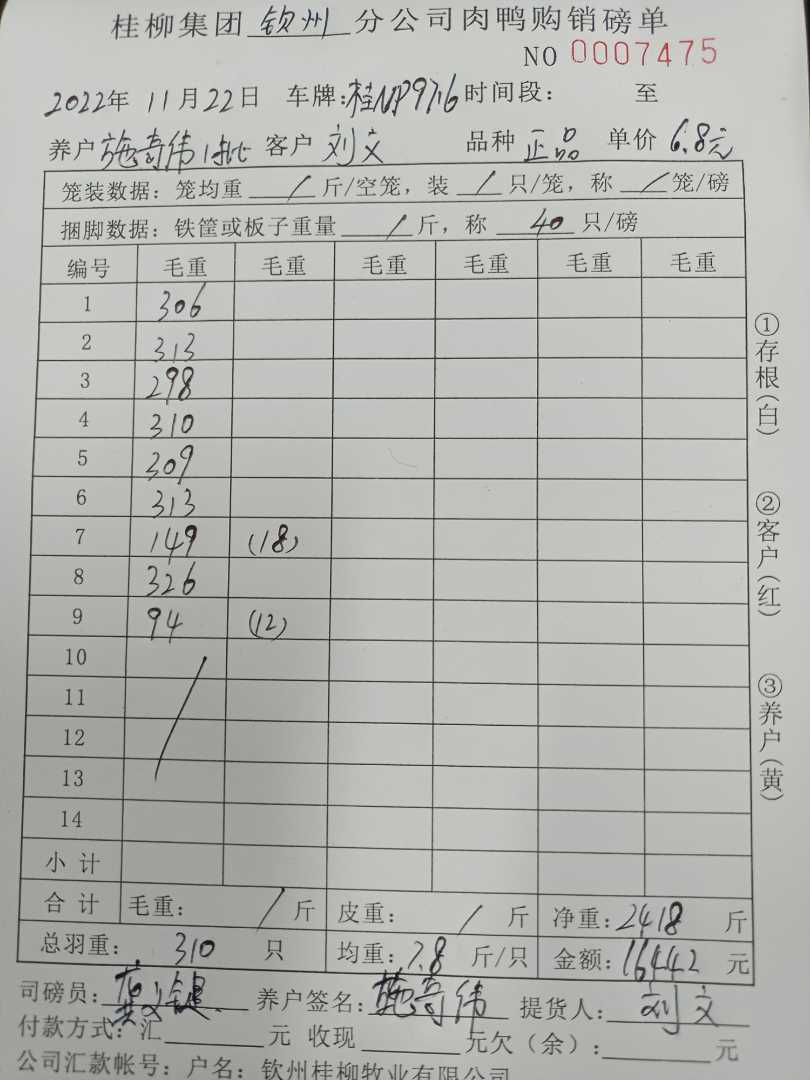 桂柳集团 钦州 分公司肉鸭购销磅单
NO 0007475
2022年 11月22日 车牌: 时间段: 至
养户 施奇伟 1批 客户 刘文 品种 正品 单价 6.8元
笼装数据: 笼均重 / 斤/空笼, 装 / 只/笼, 称 / 笼/磅
捆脚数据: 铁筐或板子重量 / 斤, 称 40 只/磅
编号 毛重 毛重 毛重 毛重 毛重 毛重
1 306
2 313
3 298
4 310
5 309
6 313
7 149 (18)
8 326
9 94 (12)
10
11
12
13
14
小计
合计 毛重: / 斤 皮重: / 斤 净重: 2418 斤
总羽重: 310 只 均重: 7.8 斤/只 金额: 16442 元
司磅员: 养户签名: 施奇伟 提货人: 刘文
付款方式: 汇 元 收现 元欠(余): 元
公司汇款帐号: 户名: 钦州桂柳牧业有限公司
①存根(白)
②客户(红)
③养户(黄)